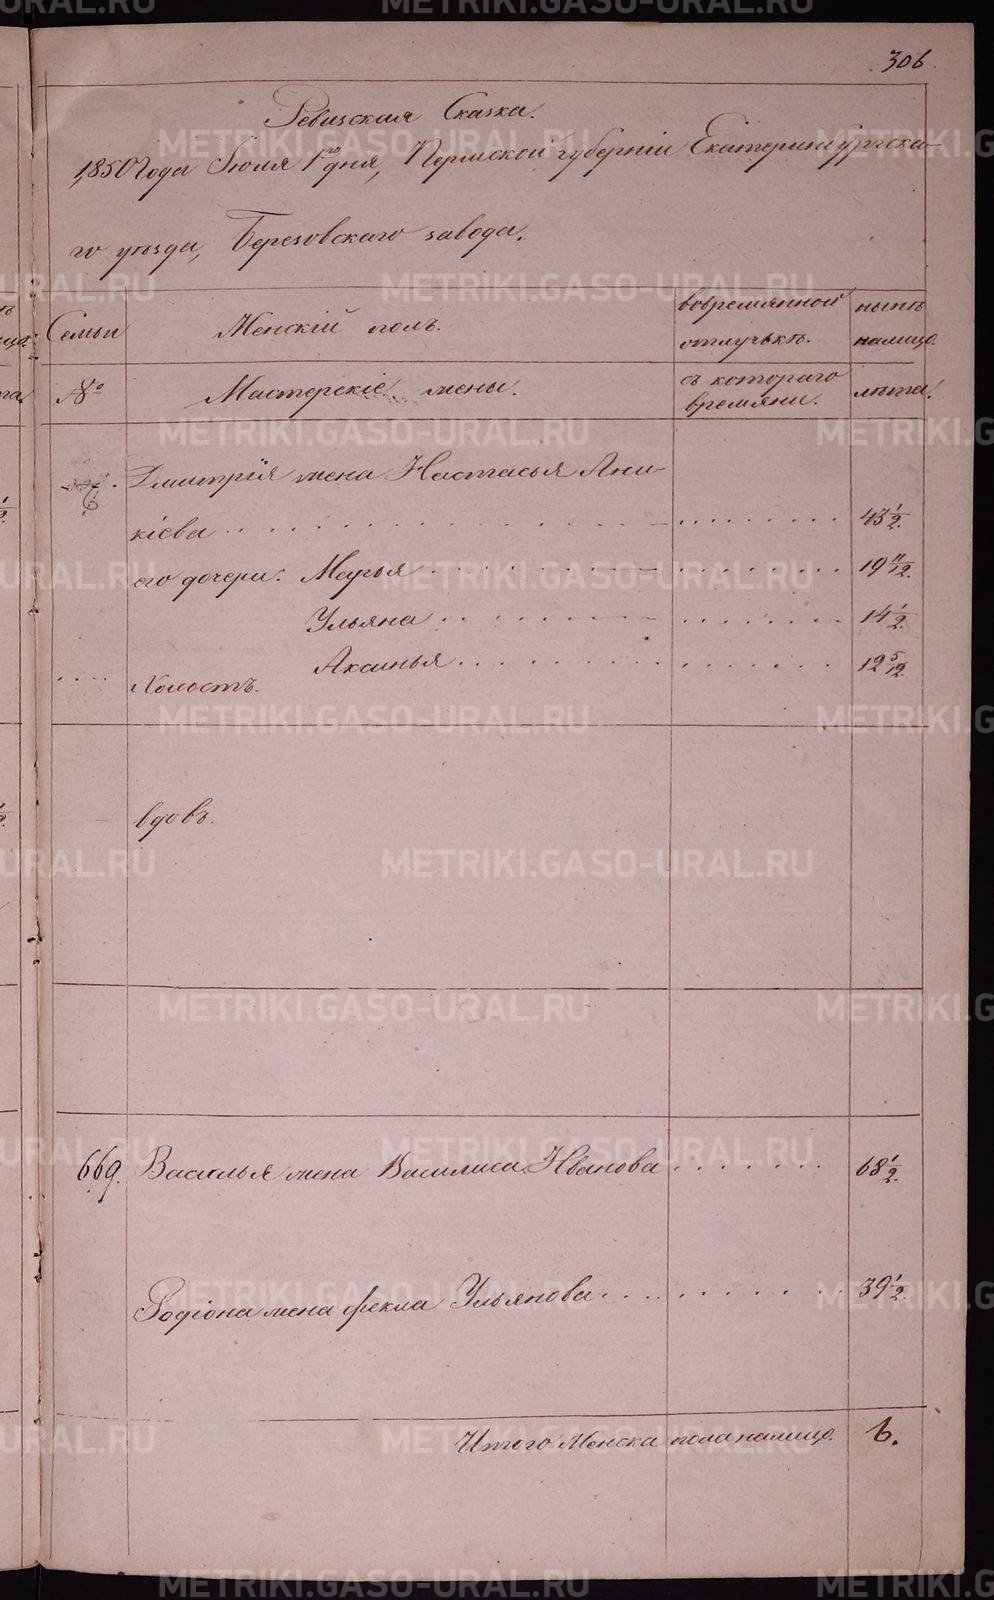 306
Ревизская Сказка.
1850 года Июля 1го дня, Пермской губернiи Екатеринбургска-
го уѣзда, Березовскаго завода.
Семьи
Женскiй полъ.
вовремянной
отлучькѣ.
нынѣ
налицо.
№
Мастерскiе жены.
съ котораго
времяни.
лѣта.
Дмитрiя жена Настасья Ани-
кiева 43 1/2.
его дочери: Марья 19 11/12.
Ульяна 14 1/2.
Аксинья 12 5/12.
Холостъ.
вдовъ.
669. Василья жена Василиса Иванова 68 1/2.
Родiона жена фекла Ульянова 39 1/2.
Итого Женска пола налицо. 6.
METRIKI.GASO-URAL.RU